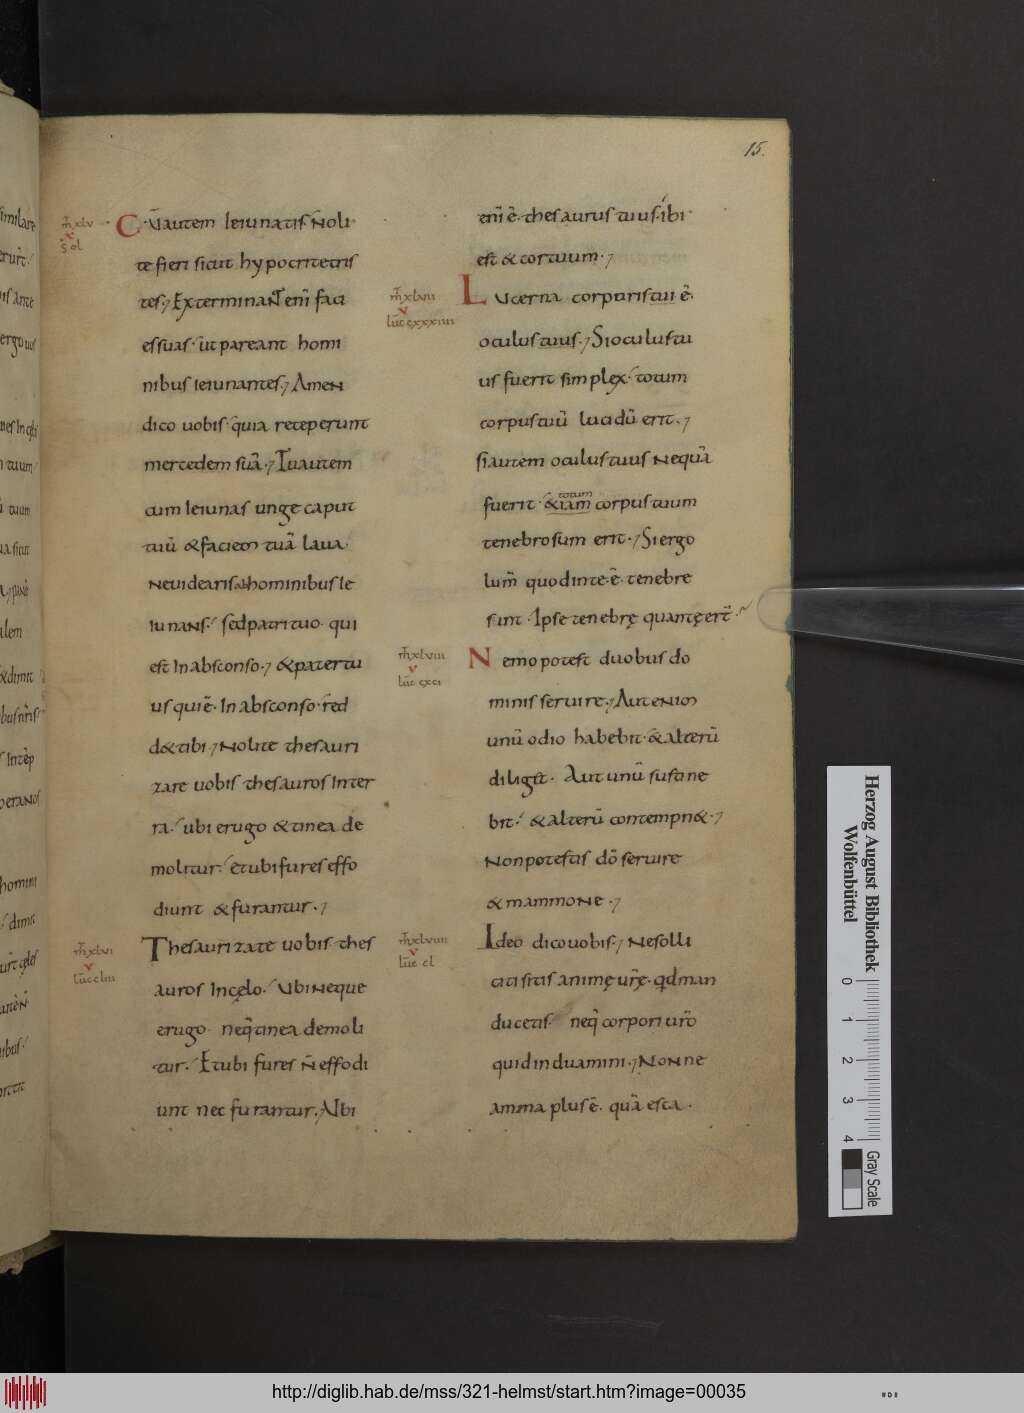 15.
m̅ xlv
v
s̅ ol
C·U̅autem Ieiunatis N̅oli
te fieri sicut hypocritetris
tes; ExterminaNT eni̅ faci
es suas· ut pareant homi
nibus ieiunantes; AmeN
dico uobis· quia receperunt
mercedem sua̅; Tuautem
cum Ieiunas unge caput
tuu̅ &faciem tua̅ laua·
Neuidearis abhominibus Ie
IunaNs· sedpatrituo· qui
est Inabsconso; &patertu
us quie̅· Inabsconso· red
d&tibi; Nolite thesauri
zare uobis thesauros Inter
ra· ubi erugo &tinea de
molitur· Etubi fures effo
diunt &furantur·;
m̅ xlvi
v
luc cliii
Thesaurizate uobis· thes
auros Incęlo· UbiNeque
erugo· neq; tinea demoli
tur· Etubi fures N̅effodi
unt nec furantur· Ubi
eni̅ e̅· thesaurus tuus· ibi
est & cortuum·;
m̅ xlvii
v
luc cxxxiiii
LUcerna corporistui e̅·
oculus tuus; Sioculustu
us fuerit simplex· totum
corpustuu̅ lucidu̅ erit·;
siautem oculustuus Nequa̅
totum
fuerit· &iam corpustuum
tenebrosum erit·; Siergo
lum̅ quodinte·e̅· tenebre
sunt· Ipse tenebrę quantęer̅t·
m̅ xlviii
v
luc cxci
Nemopotest duobus do
minis seruire; AuteNim
unu̅ odio habebit· &alteru̅
diliget· Autunu̅ sustine
bit· &alteru̅ contempn&·;
Nonpotestis do̅ seruire
&mammoNe·;
m̅ xlviiii
v
luc cl
Ideo dicouobis·; Nesolli
citi sitis animę ur̅ę· qdman
ducetis· neq; corpori ur̅o
quidinduamini·; NoNne
anima plus e̅· qua̅ esca·
Herzog August Bibliothek
Wolfenbüttel
0 1 2 3 4
Gray Scale
http://diglib.hab.de/mss/321-helmst/start.htm?image=00035